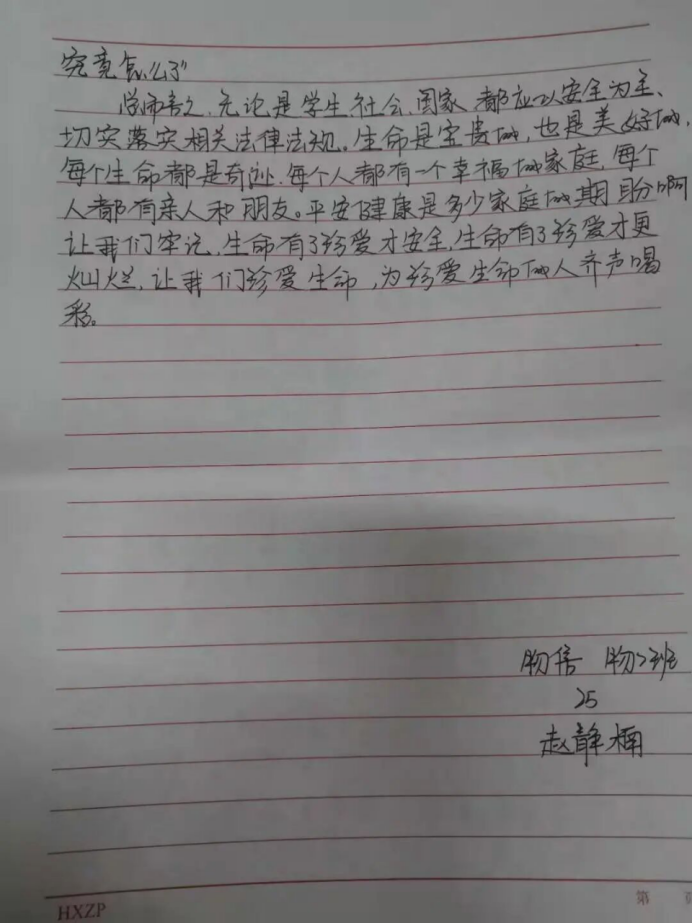 究竟怎么了"
总而言之,无论是学生社会、国家都应以安全为主、
切实落实相关法律法规。生命是宝贵的,也是美好的,
每个生命都是奇迹、每个人都有一个幸福的家庭,每个
人都有亲人和朋友。平安健康是多少家庭的期盼啊
让我们牢记,生命有了珍爱才安全,生命有了珍爱才更
灿烂,让我们珍爱生命,为珍爱生命的人齐声喝
彩。
物信 物2班
25
赵静楠
HXZP
第